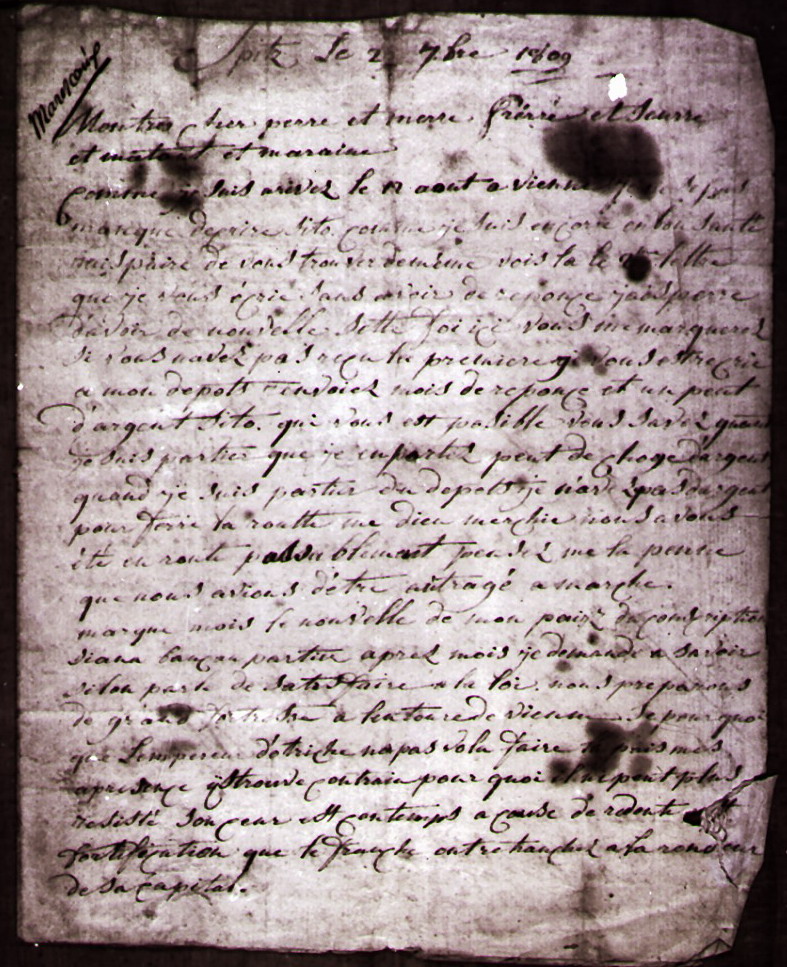 Spitz Le 2 7bre 1809
Mon tres cher perre et merre frérre et Seurre
et et maraine
comme je suis arivez le 12 aout a vienne je
manque decrire sito comme je suis encorre en bon santé
de vous trouver de même vois la le lettre
que je vous écrie sans avoir de reponce jaisperre
d'avoir de nouvelle sette foi ici vous me marquerez
si vous navez pas reçu la premierre
a mon depots envoiez mois de reponce et un peut
d'argent sito. qui vous est posible vous savez quand
je suis partier que je enportez peut de choge dargent
quand je suis partier du depots je navez pas dargent
pour ferre la routte me dieu merchie nous avons
été en route passablement pensez me la penne
que nous avions d'étre autragé a marche.
marque mois le nouvelle de mon paiz de conscription
siana partier aprez mois je demande a savoir
si lon parle de satisfaire a la loi. nous preparons
de grand fortresse a lentoure de vienne se pourquoi
que Lempereur d'otriche na pas volu faire la pais mes
apresence contrain pour quoi il ne peut plus
resisté son ceur est contemps a cause de redoute et
fortification que le franche ontretranchez a la rondeur
de sa capital.